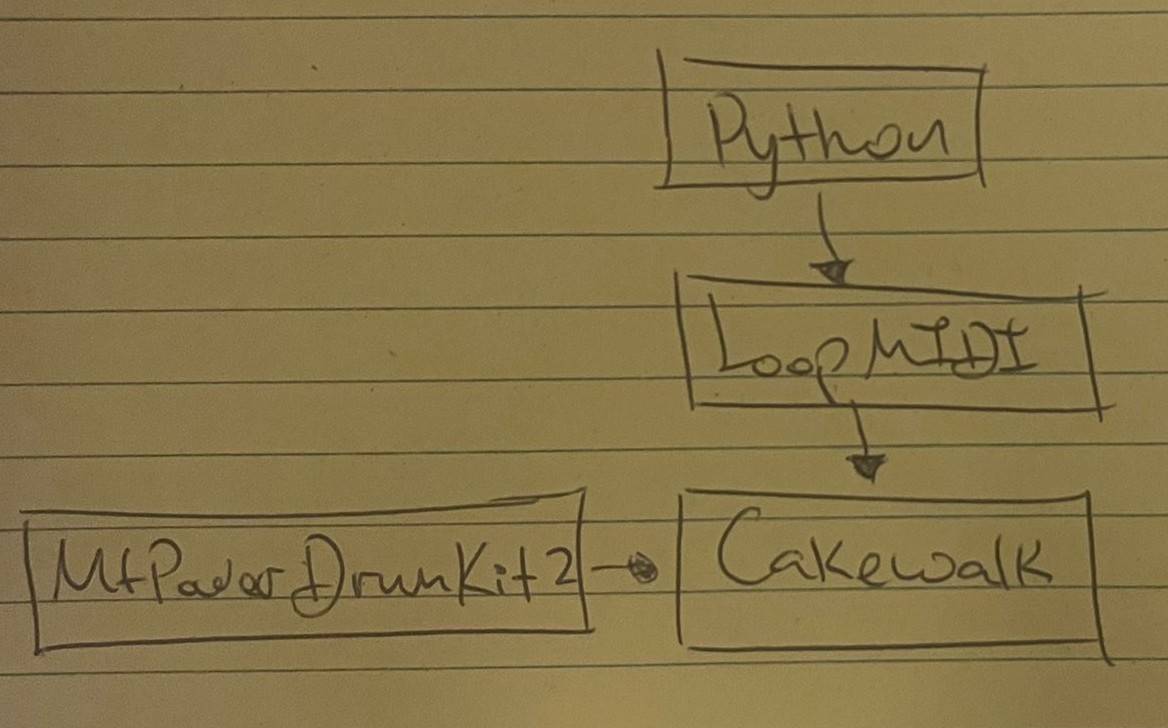 Python
LoopMIDI
MtPowerDrumKit2
Cakewalk